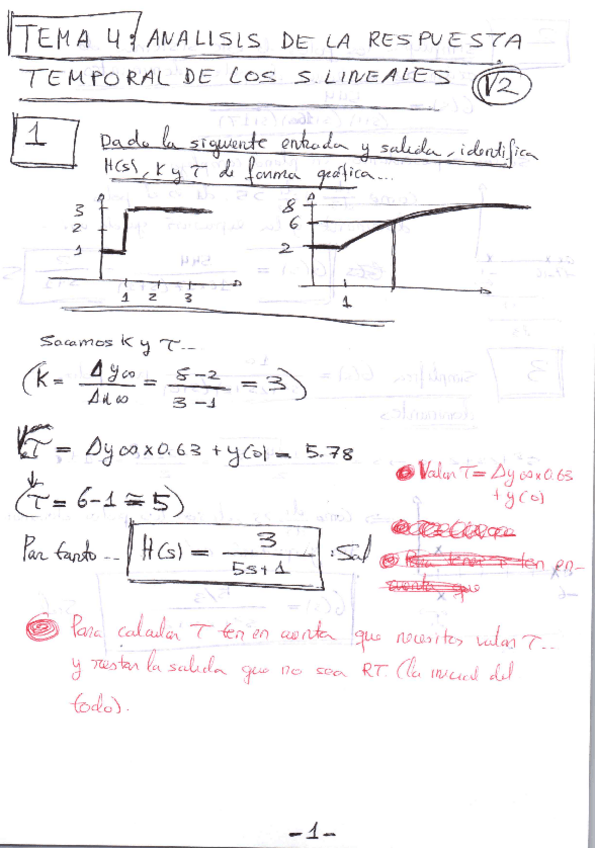 TEMA 4: ANALISIS DE LA RESPUESTA
TEMPORAL DE LOS S. LINEALES V2
1
Dada la siguiente entrada y salida, identifica
H(s), K y τ de forma gráfica...
3
2
1
1 2 3
8
6
2
1
Sacamos K y τ...
(K = Δy∞ / Δu∞ = 8-2 / 3-1 = 3)
τ = Δy∞ x 0.63 + y(0) = 5.78
(τ = 6-1 ≅ 5)
Valor τ = Δy∞ x 0.63
+ y(0)
Por tanto... H(s) = 3 / 5s+1 : Sol
Para calcular τ ten en cuenta que necesitas valor τ...
y restar la salida que no sea RT. (la inicial del
todo).
-1-